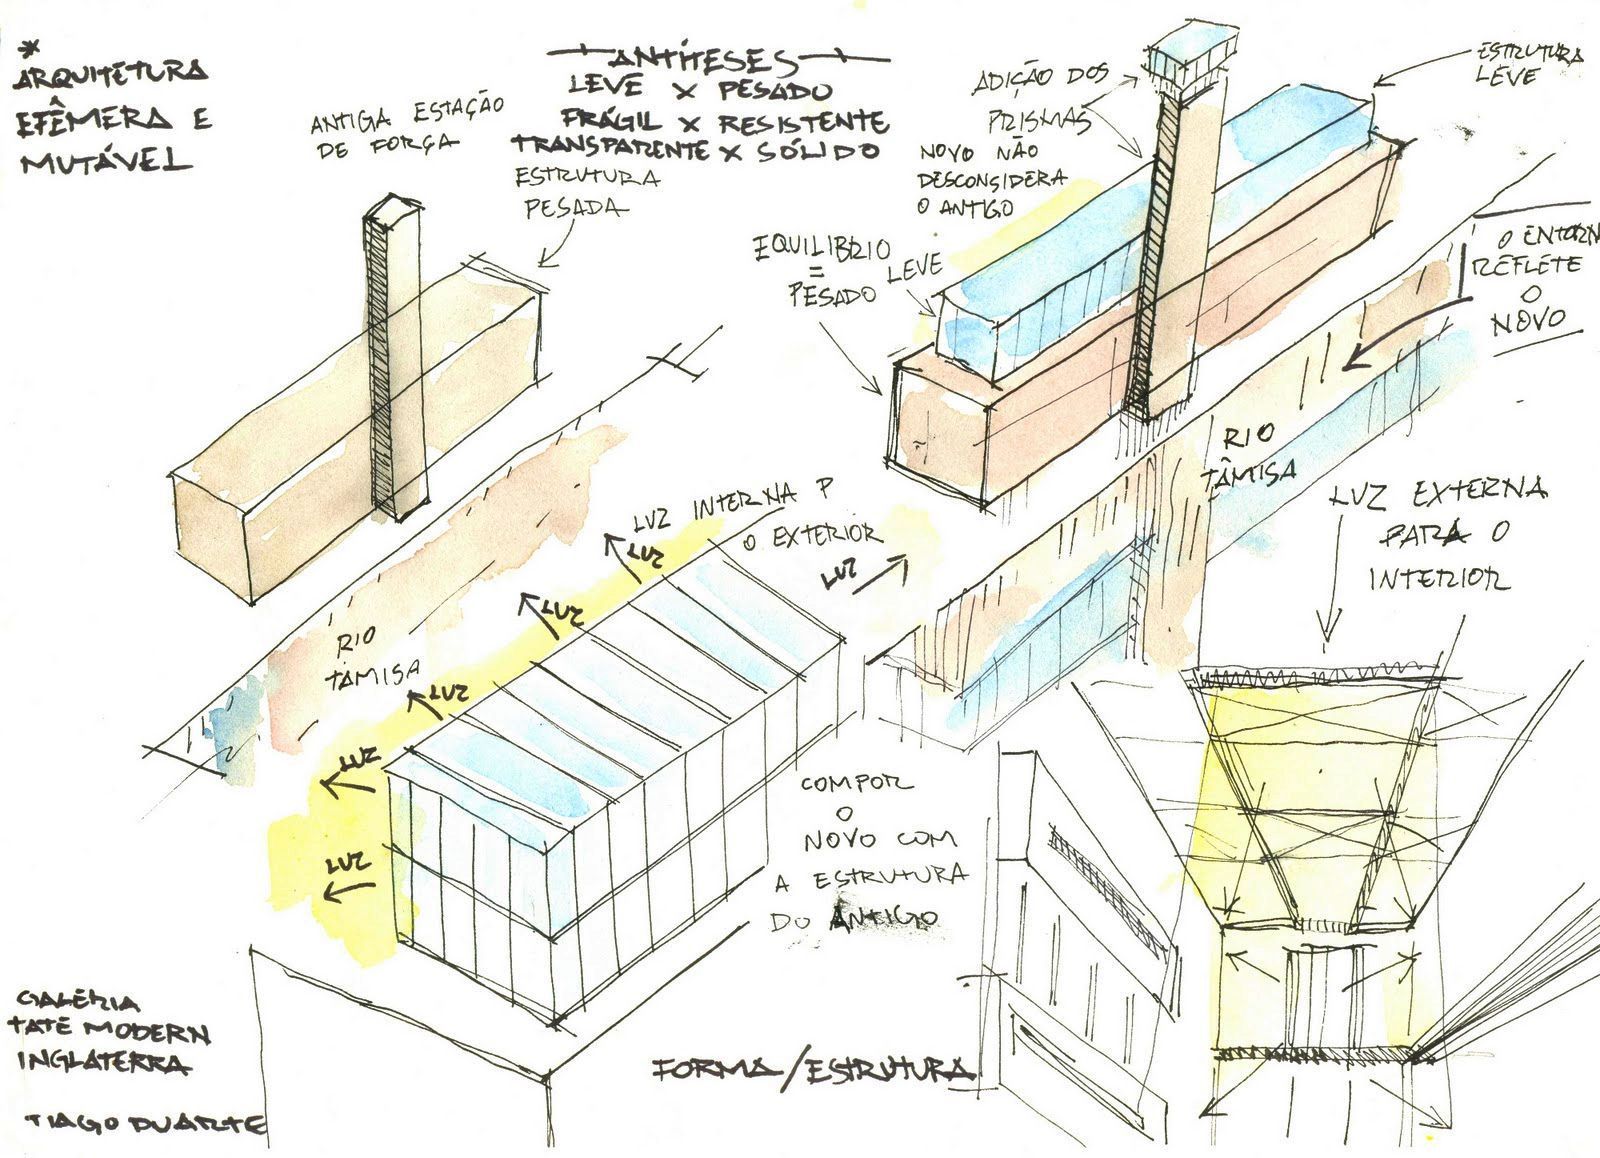 *
ARQUITETURA
EFÊMERA E
MUTÁVEL
ANTÍTESES
LEVE X PESADO
FRÁGIL X RESISTENTE
TRANSPARENTE X SÓLIDO
ANTIGA ESTAÇÃO
DE FORÇA
ESTRUTURA
PESADA
RIO
TÂMISA
ADIÇÃO DOS
PRISMAS
ESTRUTURA
LEVE
NOVO NÃO
DESCONSIDERA
O ANTIGO
EQUILIBRIO
=
PESADO
LEVE
O ENTORN
REFLETE
O
NOVO
RIO
TÂMISA
LUZ INTERNA P
O EXTERIOR
LUZ
LUZ
LUZ
LUZ
LUZ
LUZ
LUZ EXTERNA
PARA O
INTERIOR
COMPOR
O
NOVO COM
A ESTRUTURA
DO ANTIGO
GALERIA
TATE MODERN
INGLATERRA
TIAGO DUARTE
FORMA/ESTRUTURA